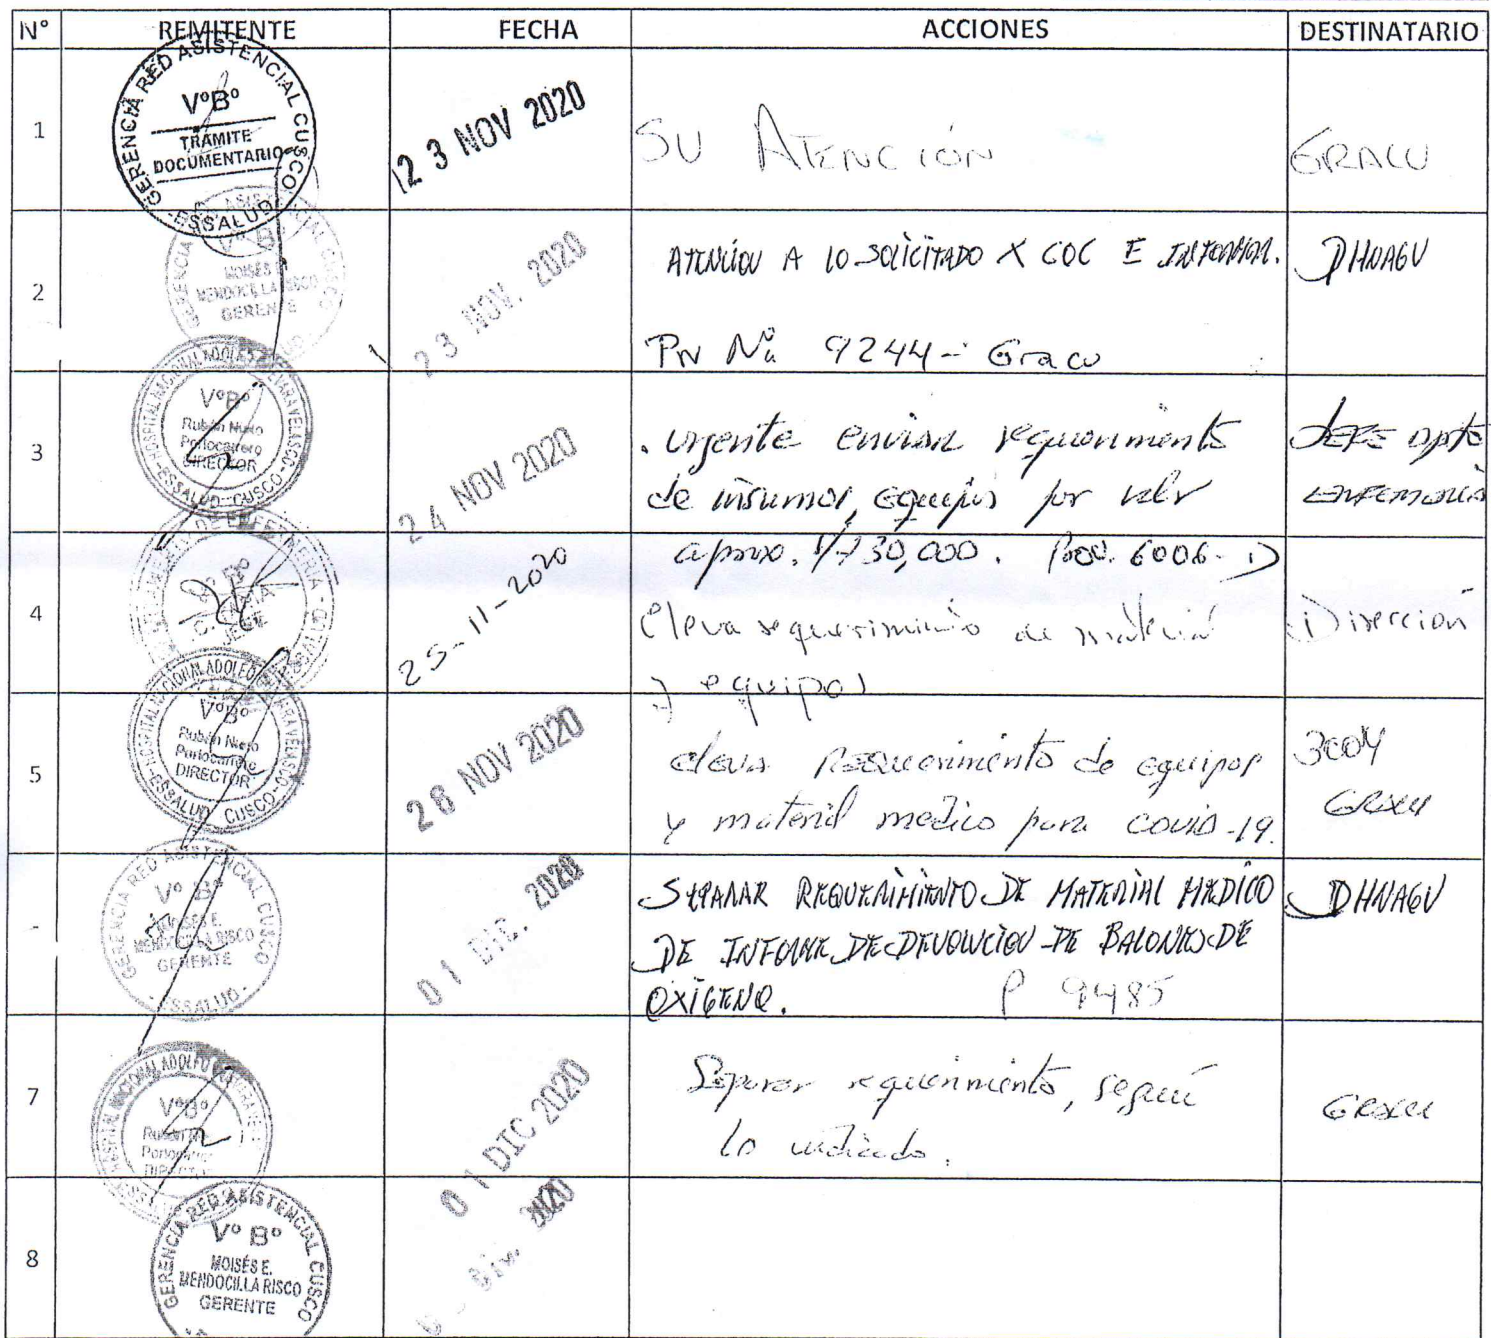 N° REMITENTE FECHA ACCIONES DESTINATARIO
1
GERENCIA RED ASISTENCIAL CUSCO
V°B°
TRÁMITE
DOCUMENTARIO
- ESSALUD -
23 NOV 2020
SU ATENCIÓN
GRACU
2
V° B°
MOISÉS E.
MENDOCILLA RISCO
GERENTE
23 NOV. 2020
ATENCIÓN A LO SOLICITADO X COC E INFORMAR.
DHNAGV
Pv Nº 9244 - Gracu
3
HOSPITAL NACIONAL ADOLFO GUEVARA VELASCO
V°B°
Rubén Nieto
Portocarrero
DIRECTOR
- ESSALUD - CUSCO -
24 NOV 2020
. Urgente enviar requerimiento
de insumos, equipos por valor
aprox. S/ 30,000. Prov. 6006-D
JEFE Dpto
ENFERMERIA
4
JEFE
25-11-2020
Eleva requerimiento de material
y equipos
Dirección
5
HOSPITAL NACIONAL ADOLFO GUEVARA VELASCO
V°B°
Rubén Nieto
Portocarrero
DIRECTOR
ESSALUD CUSCO
28 NOV 2020
eleva requerimiento de equipos
y material medico para COVID-19.
3004
GRACU
-
GERENCIA RED ASISTENCIAL CUSCO
V° B°
MOISÉS E.
MENDOCILLA RISCO
GERENTE
- ESSALUD -
01 DIC. 2020
SEPARAR REQUERIMIENTO DE MATERIAL MEDICO
DE INFORME DE DEVOLUCIÓN DE BALONES DE
OXÍGENO. P 9485
DHNAGV
7
V°B°
01 DIC 2020
Separar requerimiento, según
lo indicado.
GRACU
8
GERENCIA RED ASISTENCIAL CUSCO
V° B°
MOISÉS E.
MENDOCILLA RISCO
GERENTE
2020